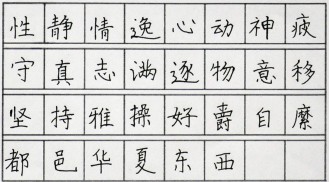 性静情逸心动神疲
守真志满逐物意移
坚持雅操好爵自縻
都邑华夏东西